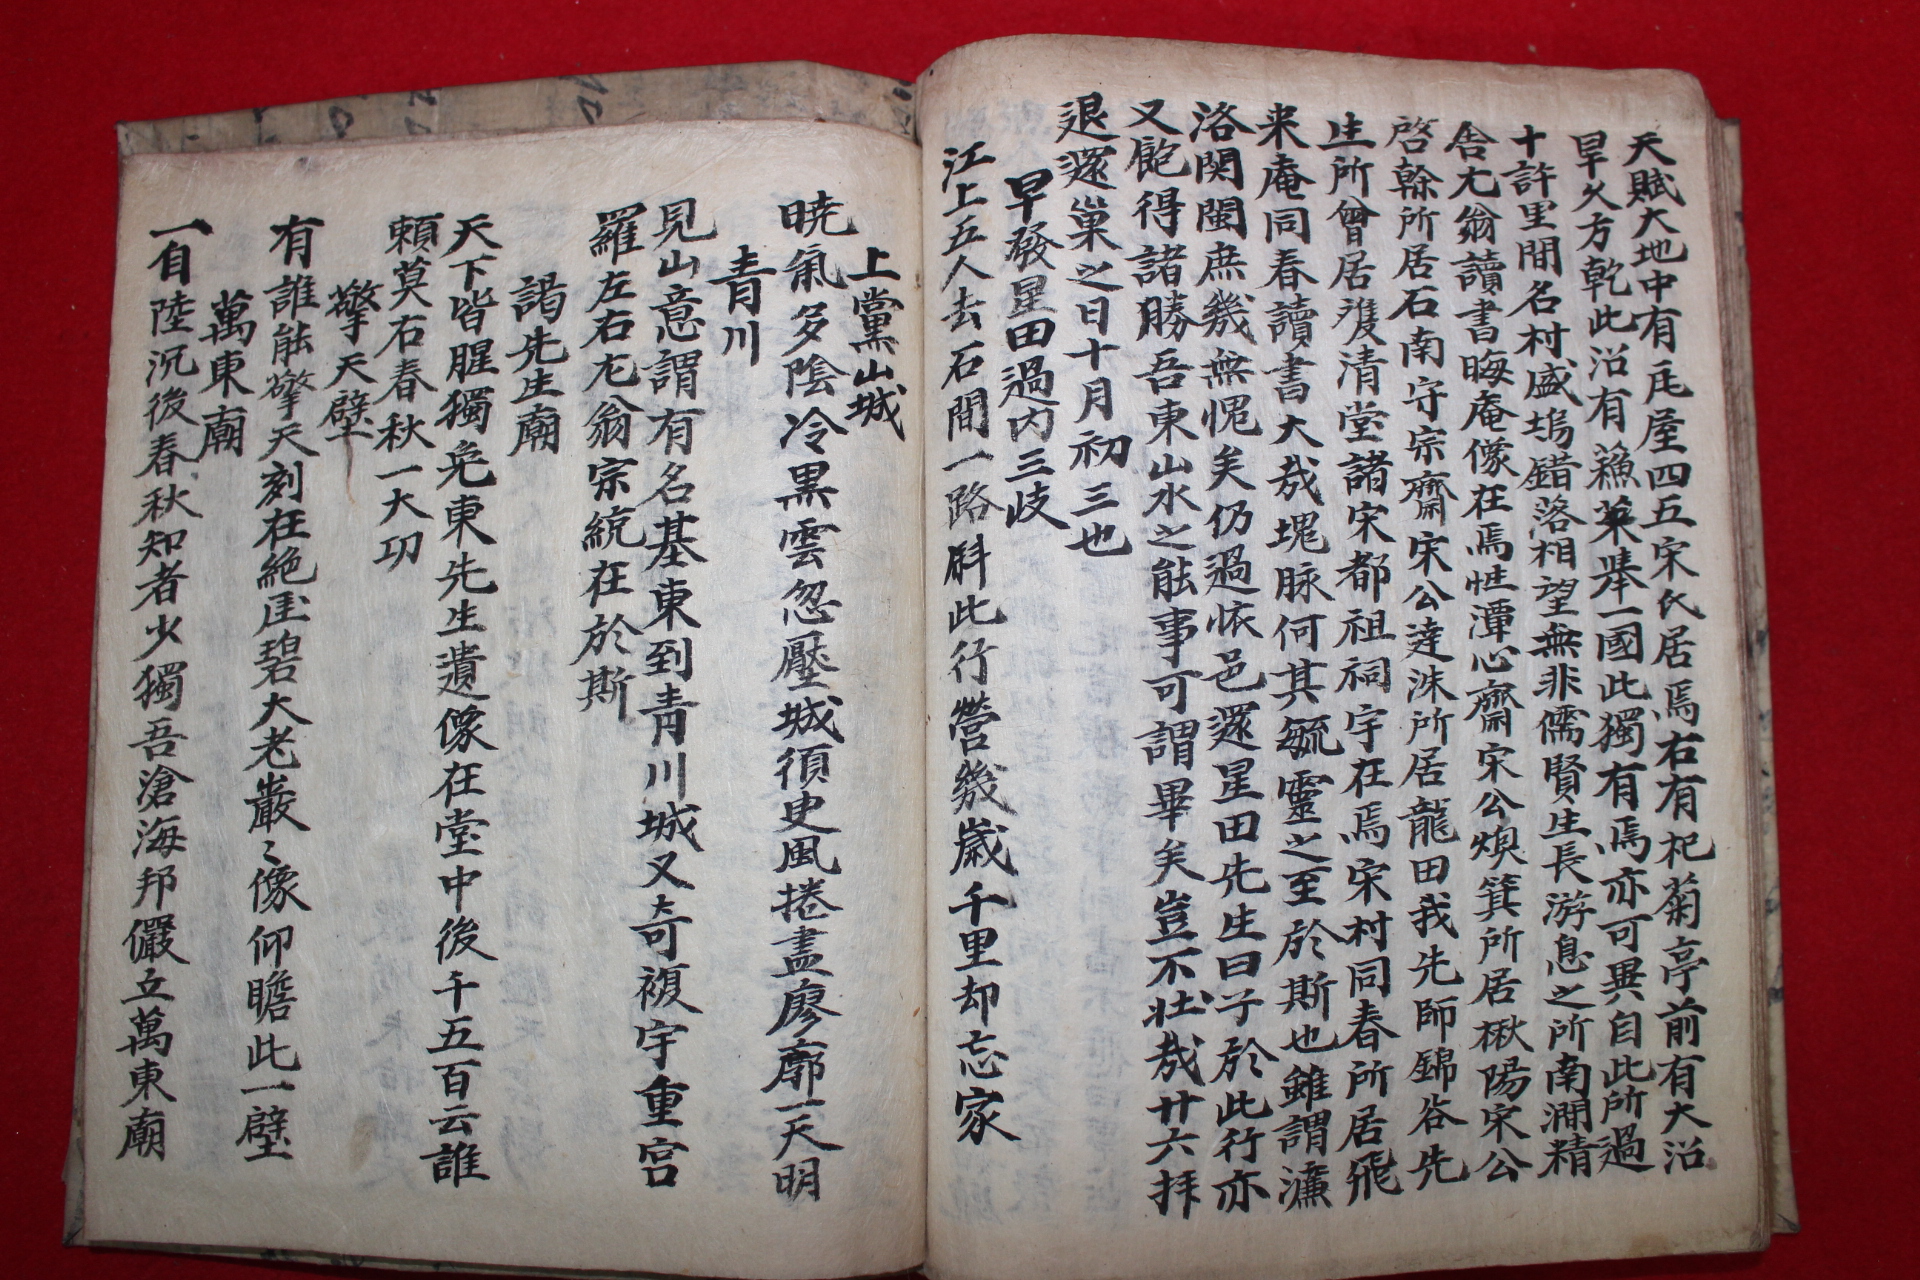 天賦大地中有瓦屋四五宋氏居焉右有杞菊亭前有大沼
旱久方乾此沼有漁箂舉一國此獨有焉亦可異自此所過
十許里間名村盛塢錯落相望無非儒賢生長游息之所南澗精
舍尤翁讀書晦庵像在焉性潭心齋宋公煥箕所居楸陽宋公
啓榦所居石南守宗齋宋公達洙所居龍田我先師錦谷先
生所曾居雙清堂諸宋都祖祠宇在焉宋村同春所居飛
来庵同春讀書大㦲塊脉何其毓靈之至於斯也雖謂濂
洛関閩庶幾無愧矣仍過怀邑還星田先生曰子於此行亦
又飽得諸勝吾東山水之能事可謂畢矣豈不壮㦲廿六拜
退還巢之日十月初三也
早發星田過内三歧
江上五人去石間一路斜此行營幾歲千里却忘家
上黨山城
暁氣多陰冷黒雲忽壓城須臾風捲盡廖廓一天明
青川
見山意謂有名基東到青川城又奇複宇重宮
羅左右尤翁宗統在於斯
謁先生廟
天下皆腥獨免東先生遺像在堂中後千五百云誰
頼莫右春秋一大功
擎天壁
有誰能擎天刻在絶厓碧大老巖〻像仰瞻此一壁
萬東廟
一自陸沉後春秋知者少獨吾滄海邦儼立萬東廟